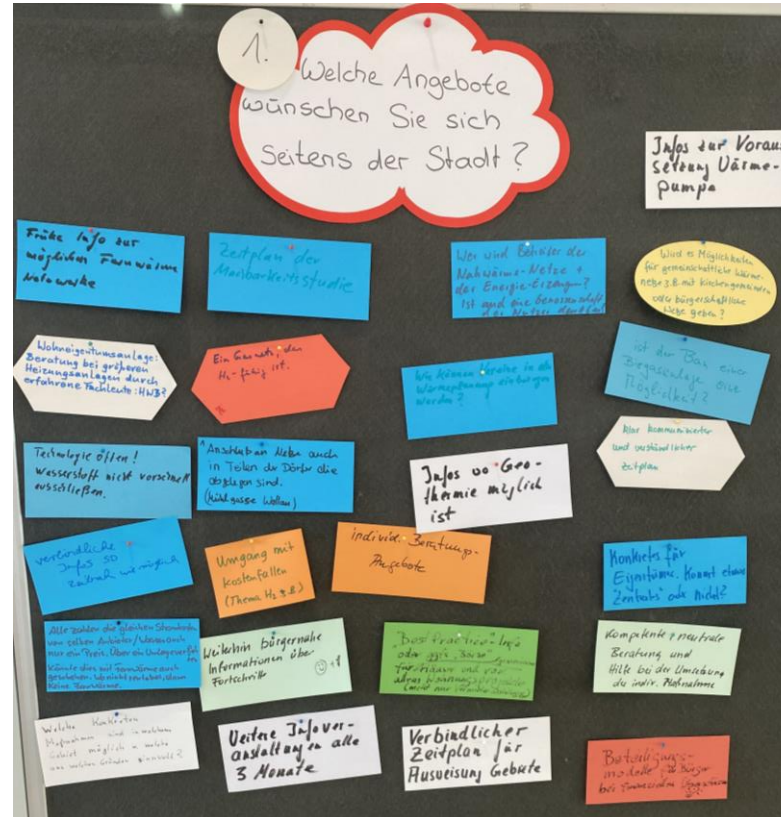 1.
Welche Angebote
wünschen Sie sich
seitens der Stadt?
Infos zur Voraus
setzung Wärme-
pumpe
Frühe Info zur
möglichen Fernwärme
Netzwerke
Zeitplan der
Machbarkeitsstudie
Wer wird Betreiber der
Nahwärme-Netze +
der Energie-Erzeugung?
Ist auch eine Genossenschaft
der Nutzer
Wird es Möglichkeiten
für gemeinschaftliche Wärme-
netze z.B. mit Kirchengemeinden
oder bürgerschaftliche
Netze geben?
Wohneigentumsanlage:
Beratung bei größeren
Heizungsanlagen durch
erfahrene Fachleute: HWB?
Ein Gasnetz, das
H₂-fähig ist.
Wie können Vereine in die
Wärmeplanung einbezogen
werden?
ist der Bau einer
Biogasanlage eine
Möglichkeit?
Technologie offen!
Wasserstoff nicht vorschnell
ausschließen.
Anschluss an Netze auch
in Teilen der Dörfer die
abgelegen sind.
(Mühlgasse
Infos wo Geo-
thermie möglich
ist
klar kommunizierter
und verständlicher
Zeitplan
verbindliche
Infos so
zeitnah wie möglich
Umgang mit
Kostenfallen
(Thema H₂ z.B.)
individ. Beratungs-
Angebote
Konkretes für
Eigentümer. Kommt etwas
Zentrales oder nicht?
Alle zahlen die gleichen Stromkosten
vom selben Anbieter/Wasser auch
nur ein Preis. Über ein Umlageverfah
ren
Könnte dies mit Fernwärme auch
geschehen. Wo nicht rentabel, dann
keine Fernwärme.
Weiterhin bürgernahe
Informationen über
Fortschritte
"Best Practice"-Info
oder
für
Kompetente + neutrale
Beratung und
Hilfe bei der Umsetzung
der indiv. Maßnahme
Welche konkreten
Maßnahmen sind in welchem
Gebiet möglich u. welche
aus welchen Gründen sinnvoll?
Weitere Infover-
anstaltungen alle
3 Monate
Verbindlicher
Zeitplan für
Ausweisung Gebiete
Beteiligungs-
modelle für Bürger
bei finanziellen